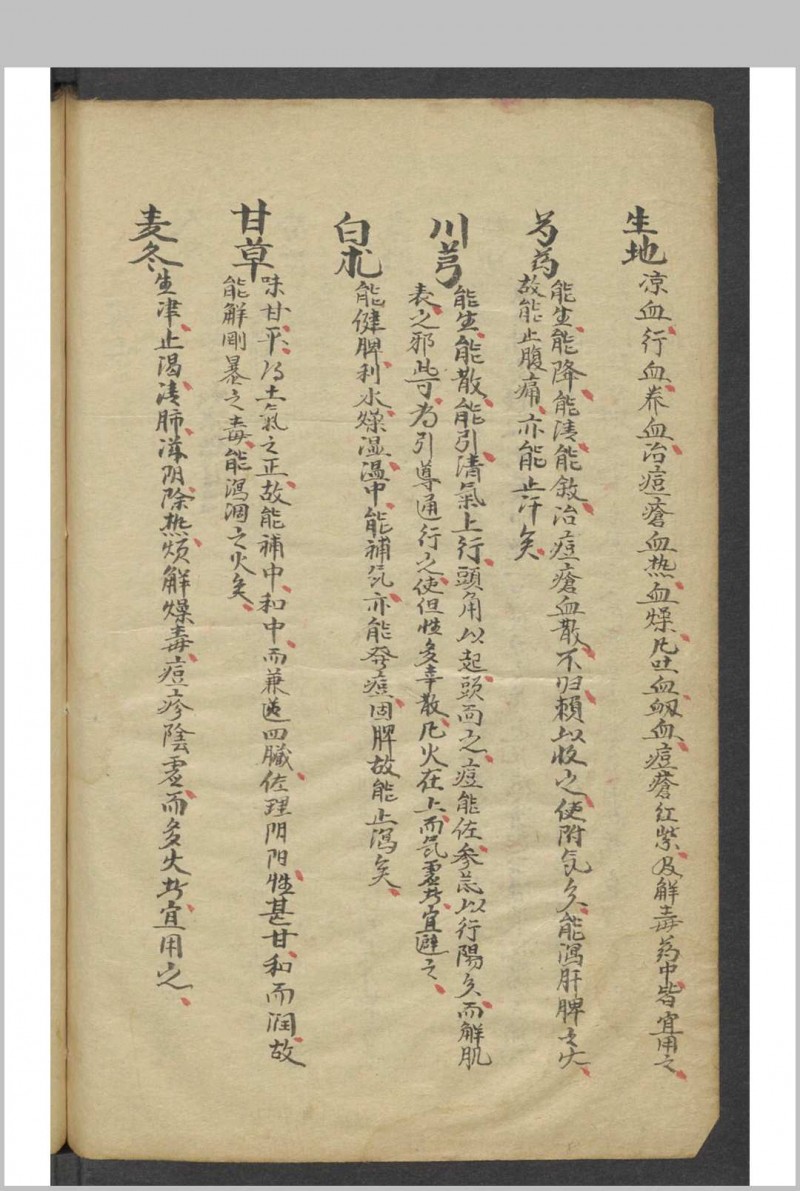 生地 凉血、行血、养血、治痘瘡血热血燥、凡吐血衂血、痘瘡红紫、及解毒药中、皆宜用之、
芍药 能生、能降、能清、能敛、治痘瘡血散、不归、頼以收之、使附気矣、能瀉肝脾之火、
故能止腹痛、亦能止汗矣、
川芎 能生、能散、能引清氣上行、頭角以起、頭面之痘、能佐参芪、以行陽矣、而解肌
表之邪、此等为引導通行之使、但性多辛散、凡火在上、而気虚者、宜避之、
白朮 能健脾、利水、燥湿、温中、能補気、亦能發痘、固脾、故能止瀉矣、
甘草 味甘、平、得土氣之正、故能補中、和中、而兼四臟、佐理阴阳、性甚甘、和而润、故
能解剛暴之毒、能瀉涸之火矣、
麦冬 生津、止渴、清肺、滋阴、除热烦、解燥毒、痘疹陰虚、而多火者、宜用之、